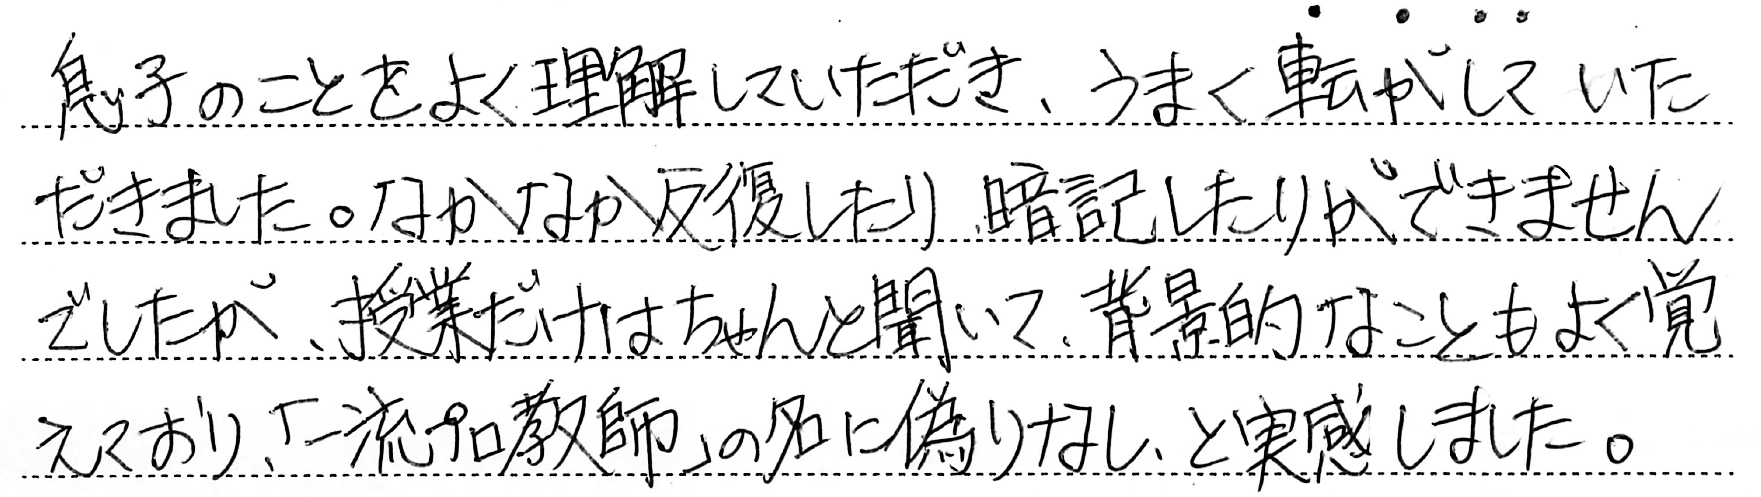 息子のことをよく理解していただき、うまく転がしていた
だきました。なかなか反復したり、暗記したりができません
でしたが、授業だけはちゃんと聞いて、背景的なこともよく覚
えており、「一流プロ教師」の名に偽りなし、と実感しました。